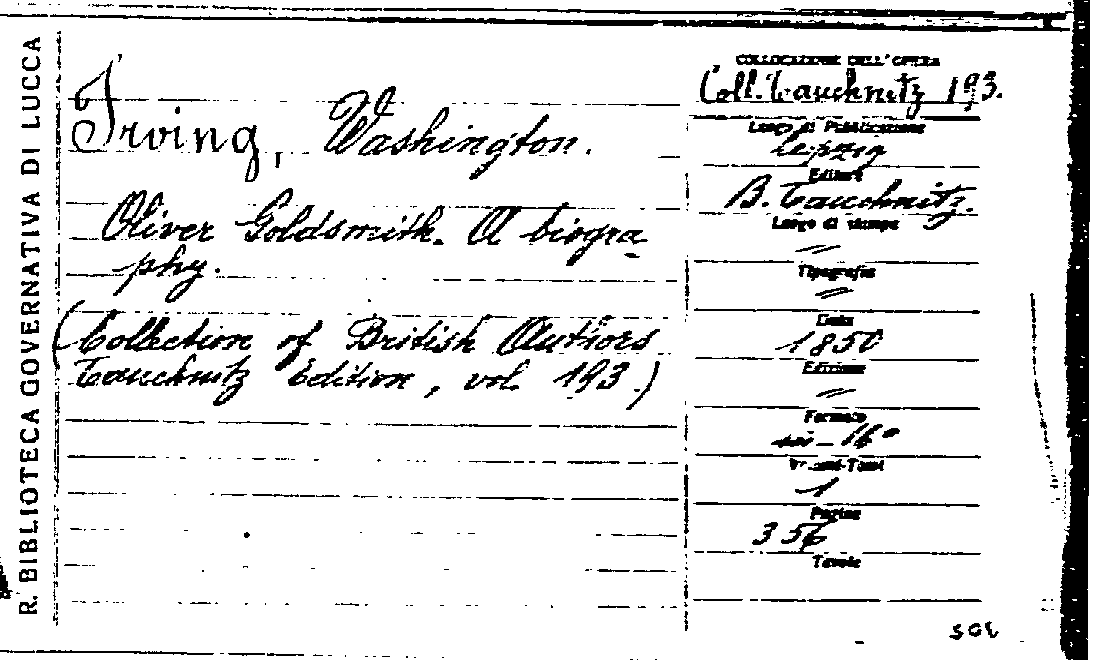 R. BIBLIOTECA GOVERNATIVA DI LUCCA
Irving, Washington.
Oliver Goldsmith. A biogra-
phy.
(Collection of British Authors
Tauchnitz Edition, vol. 193.)
COLLOCAZIONE DELL'OPERA
Coll. Tauchnitz 193.
Luogo di Pubblicazione
Leipzig
Editore
B. Tauchnitz.
Luogo di stampa
"
Tipografia
"
Data
1850
Edizione
"
Formato
in-16°
Volumi-Tomi
1
Pagine
356
Tavole